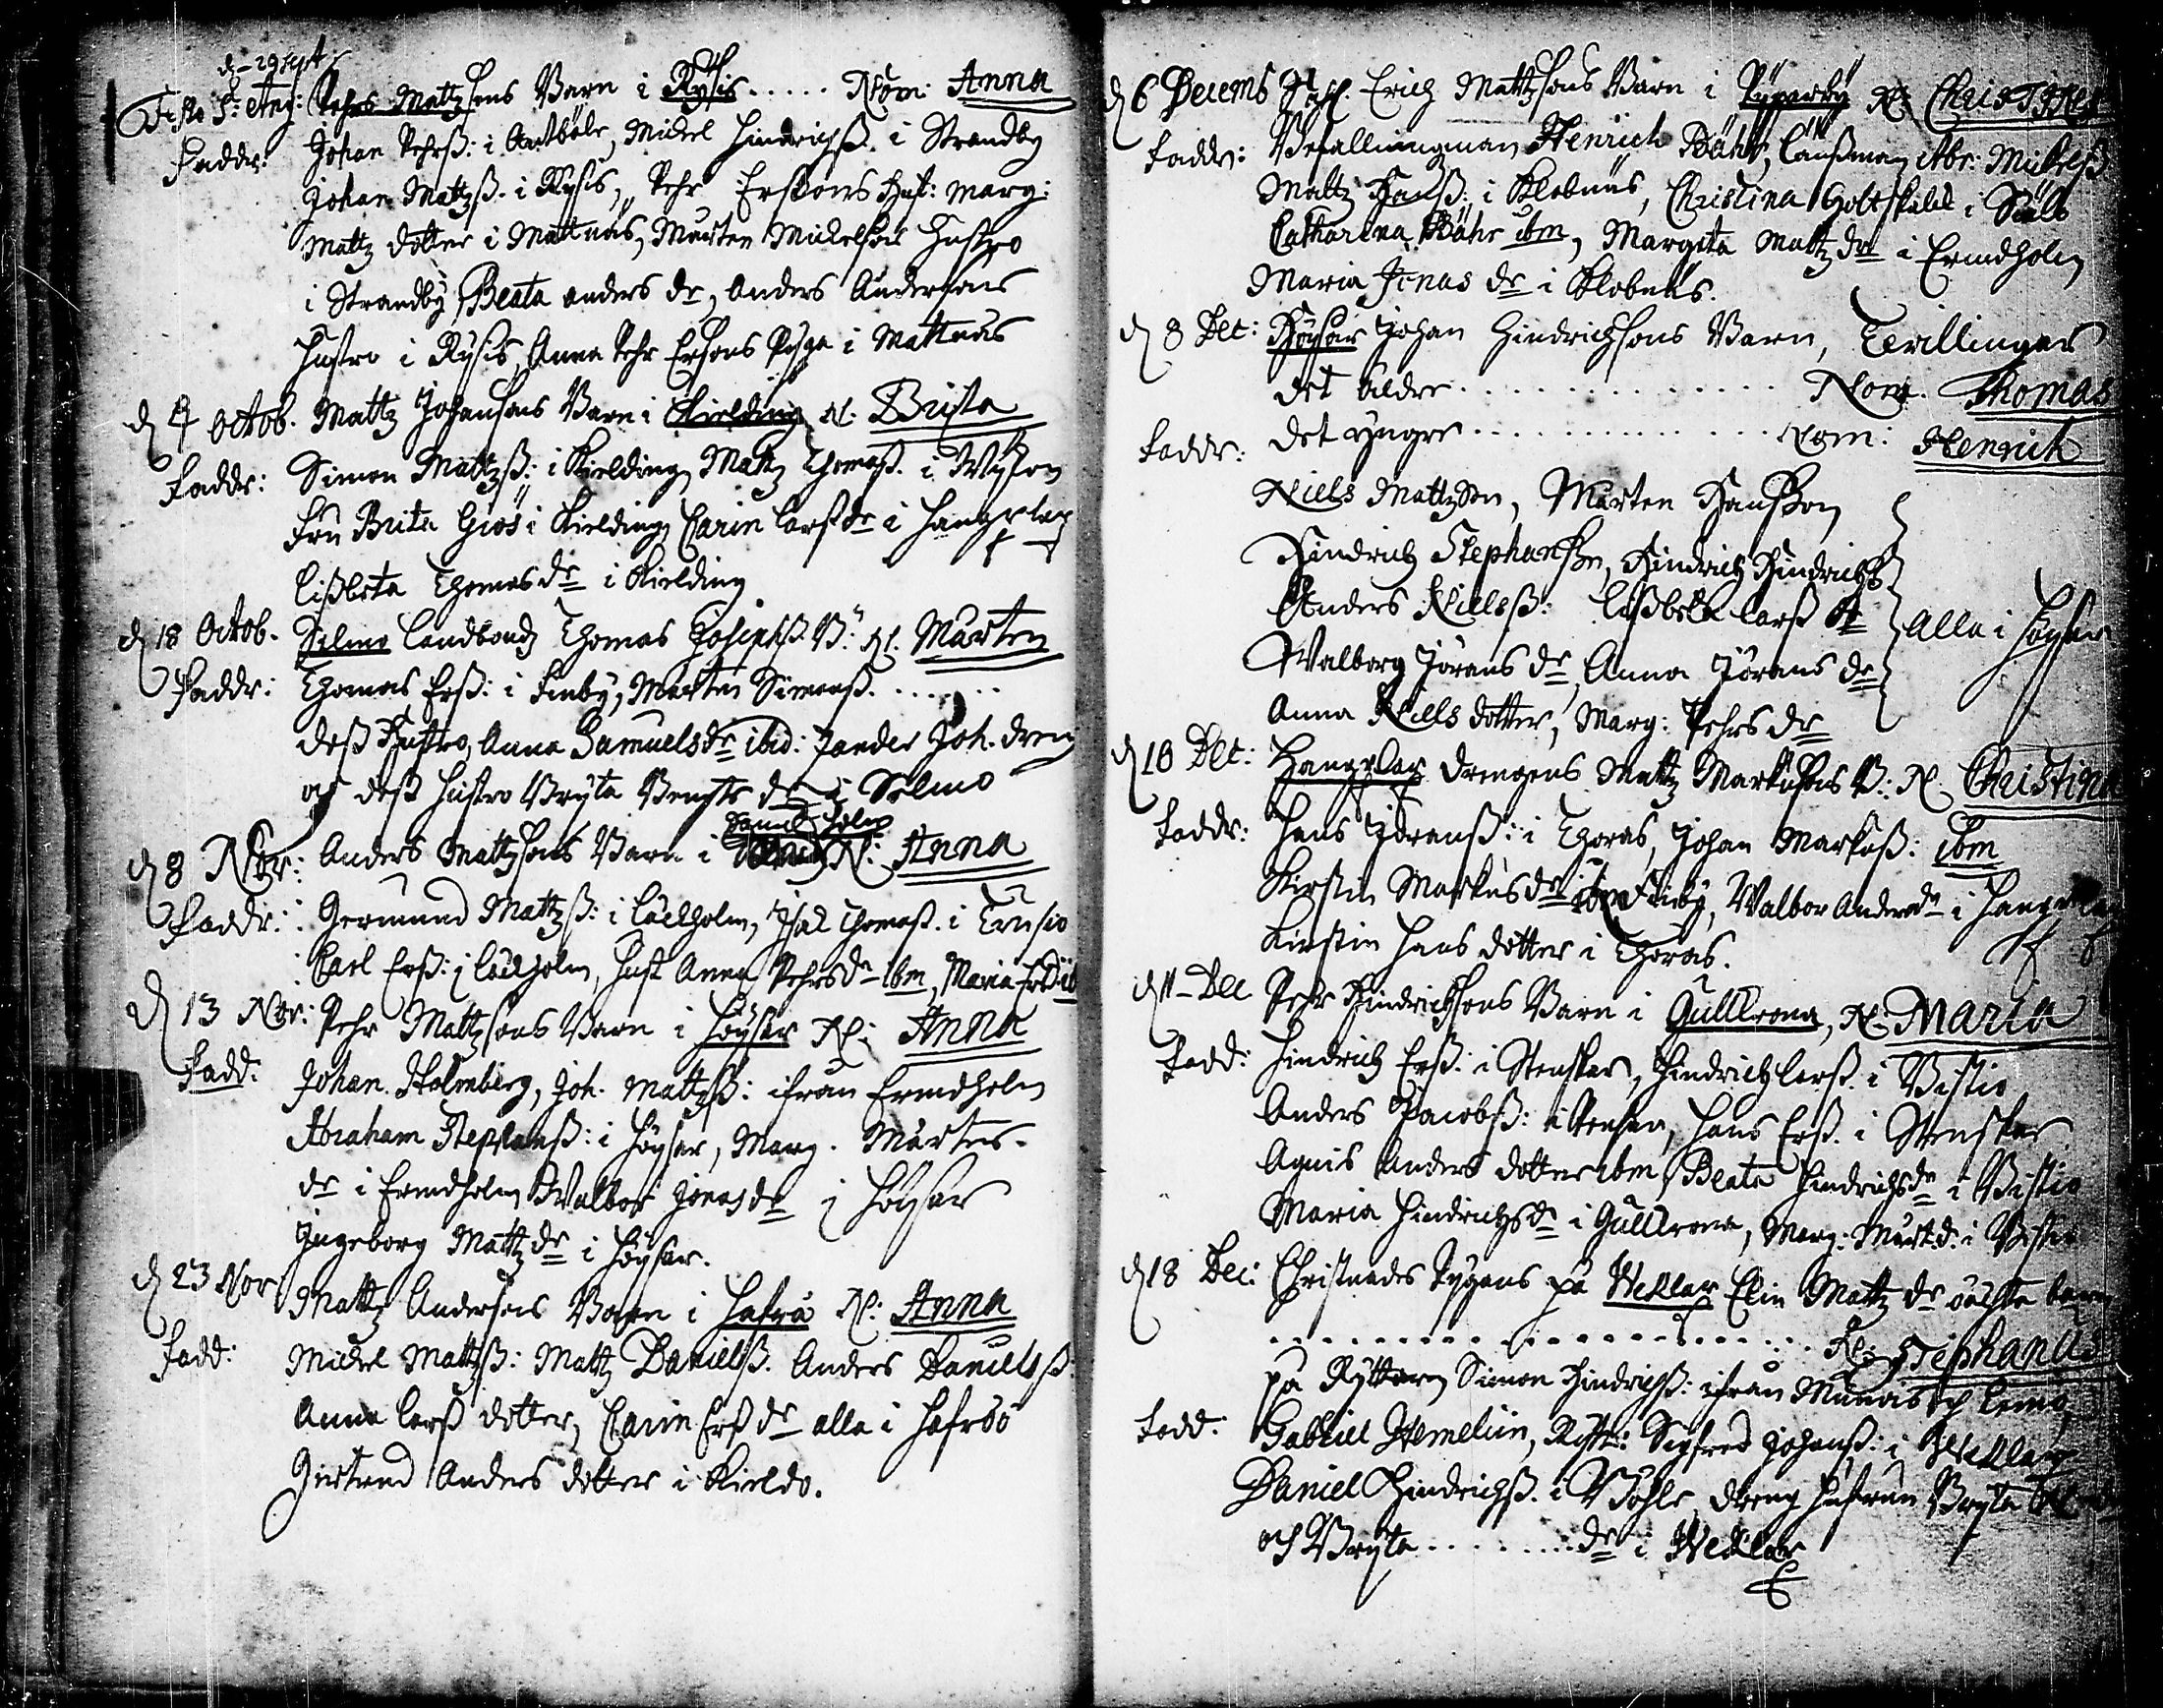 d - 29 Sept
Festo S: Ang: Pehrs Mattzsons Barn i Rysis ..... Nom: Anna
Faddr: Johan Pehrß: i Antböle, Mickel Hindrichß. i Strandby
Johan Mattzß. i Rysis, Pehr Ersons Hust: Marg:
Mattz dotter i Mattnäs, Mårten Mickelsons Hustro
i Strandby, Beata Anders dr, Anders Andersons
Hustro i Rysis, Anna Pehr Ersons Pyga i Mattnäs
d 4 Octob. Mattz Johansons Barn i Kielding N. Brita
Faddr: Simon Mattzß: i Kielding, Mattz Thomaß. i
Fru Brita Giös i Kielding, Carin Larß dr i Hangslax
Lißbeta Thomas dr i Kielding
d 18 Octob. Selmo Landbond Thomas Josephß. B: N. Mårten
Faddr: Thomas Erß: i Finby, Mårten Simonß. ......
deß Hustro, Anna Samuels dr ibid: Joh. dreng
och deß Hustro Bryta Bengts dr i Selmo
Samuelsholm
d 8 Nbr: Anders Mattzsons Barn i N: Anna
Faddr: Germund Mattzß: i Löelholm, Isac Thomaß. i
Carl Erß: i Löelholm, Hust Anna Pehrs dr ibm, Maria Ers d ib
d 13 Nbr: Pehr Mattzsons Barn i Höysar N: Anna
Fadd: Johan Holmberg, Joh. Mattzß: ifrån Ermdholm
Abraham Stephanß: i Höysar, Marg. Mårtens-
dr i Ermdholm Walbor Jonas dr i Höysar
Ingeborg Mattz dr i Höysar.
d 23 Nov Mattz Andersons Barn i Hafrö N: Anna
Fadd: Mickel Mattzß: Mattz Danielß. Anders Danielsß.
Anna Larß dotter, Carin Erß dr alla i Hafröö
Giertrud Anders dotter i Kieldo.
d 6 Decemb Erich Mattzsons Barn i Pyparby N: Christiern
Faddr: Befallningzman Henrich Bähr, Länßman Abr: Mickelß
Mattz Hanß: i Klobnäs, Christina Gottskalk i
Catharina Bähr ibm, Margita Mattz dr i Ermdholm
Maria Jonas dr i Klobnäs.
d 8 Dec: Höysar Johan Hindrichsons Barn, Twillingar
det äldre .............. Nom. Thomas
Faddr: det yngre .............. Nom: Henrich
Niels Mattzson, Mårten Hansson
Hindrich Stephanson, Hindrich Hindrichß
Anders Nielsß: Lißbeta Larß dr
Walborg Jörans dr, Anna Jörans dr
Anna Niels dotter, Marg: Pehrs dr
Alla i Höysar
d 10 Dec: Hangslax drengens Mattz Markusons B: N. Christina
Faddr: Hans Jöranß: i Thoras, Johan Markuß: ibm
Kirstin Markus dr i Finby, Walbor Anders dr i Hangslax
Kirstin Hans dotter i Thoras.
d 11 - Dec Pehr Hindrichsons Barn i Gullkrona, N. Maria
Fadd: Hindrich Erß: i Stenskar, Hindrich Larß. i Bistio
Anders Jacobß: i Pensar, Hans Erß. i Stenskar
Agnis Anders dotter ibm, Beata Hindrichs dr i Bistio
Maria Hindrichs dr i Gullkrona, Marg: Mårt.d. i Bistio
d 18 Dec: Christnades Pygans på Weklax Elin Mattz dr oächta barn
.............. N: Stephanus
på Ryttaren Simon Hindrichß: ifrån Munais och Lemo
Fadd: Gabriel Hemelein, Rytt: Sigfred Johanß: i Wekklax
Daniel Hindrichß. i Böhle, dreng Hustrun Bryta
och Bryta ........ dr i Weklax